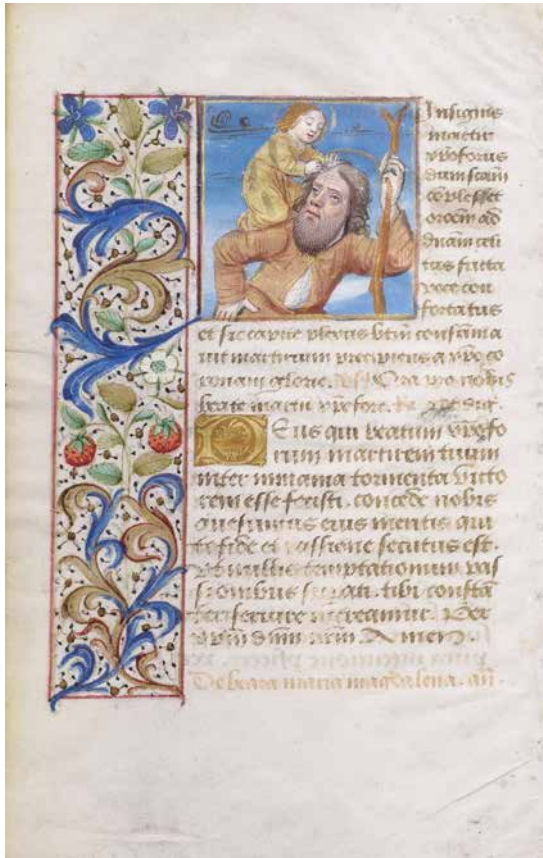 Insignis
martir
xp̄oforus
dum sc̄am
cōplesset
orōem ad
dn̄am celi
tus facta
voce con
fortatus
et sic capite plexus
nit martirium precipiens a xp̄o co
ronam glorie. Ora pro nobis
beate martir xp̄ofore.
Deus qui beatum xp̄ofo
rum martirem tuum
inter tormenta victo
rem esse fecisti. concede nobis
quesumus eius meritis qui
te fide et passione secutus est.
temptationum pas
tibi constā
ter seruire mereamur. Per
xp̄m dn̄m nr̄m Amen.
De beata maria magdalena. añ.